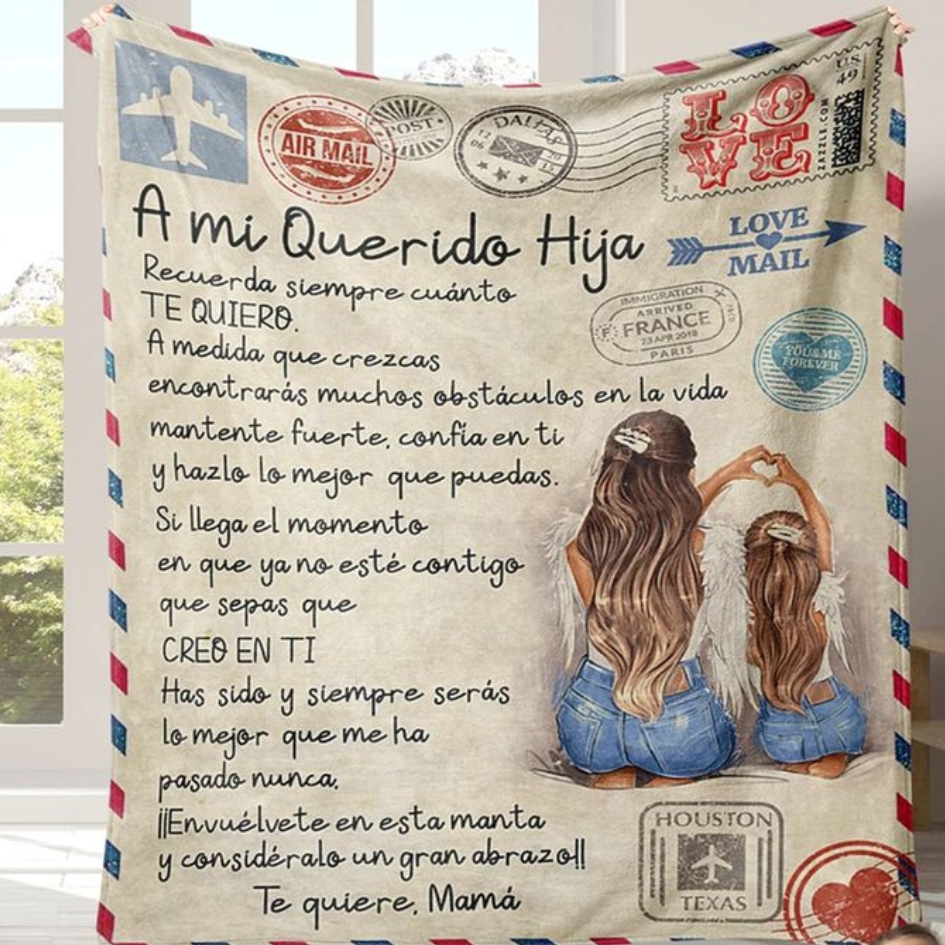 AIR MAIL
POST
DALLAS
LOVE
U.S. 49
ZAZZLE.COM
A mi Querido Hija
LOVE
MAIL
Recuerda siempre cuánto
TE QUIERO.
IMMIGRATION
ARRIVED
FRANCE
23 APR 2018
PARIS
A medida que crezcas
YOU & ME
FOREVER
encontrarás muchos obstáculos en la vida
mantente fuerte, confía en ti
y hazlo lo mejor que puedas.
Si llega el momento
en que ya no esté contigo
que sepas que
CREO EN TI
Has sido y siempre serás
lo mejor que me ha
pasado nunca.
¡¡Envuélvete en esta manta
y considéralo un gran abrazo!!
Te quiere, Mamá
HOUSTON
TEXAS